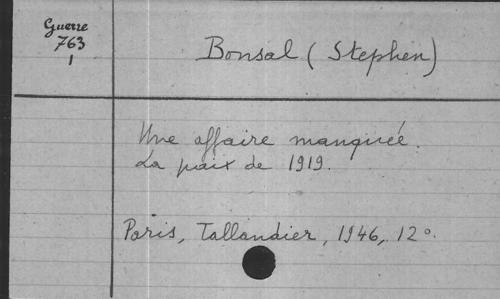 Guerre
763
1
Bonsal (Stephen)
Une affaire manquée.
La paix de 1919.
Paris, Tallandier, 1946, 12°.